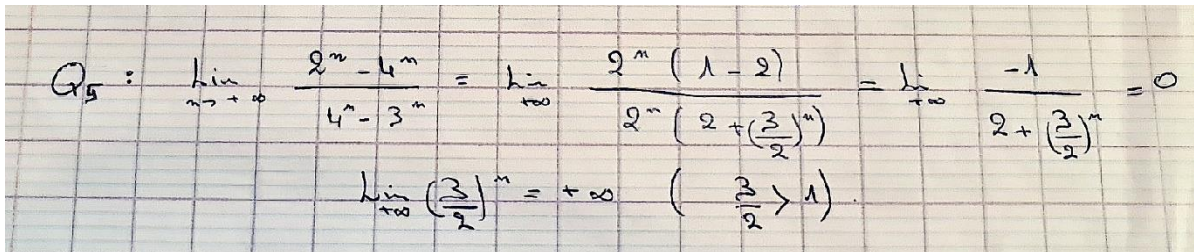 Q5 : Lim n→+∞ (2^n - 4^n)/(4^n - 3^n) = Lim +∞ (2^n (1 - 2))/(2^n (2 + (3/2)^n)) = Lim +∞ (-1)/(2 + (3/2)^n) = 0
Lim +∞ (3/2)^n = +∞ (3/2 > 1).